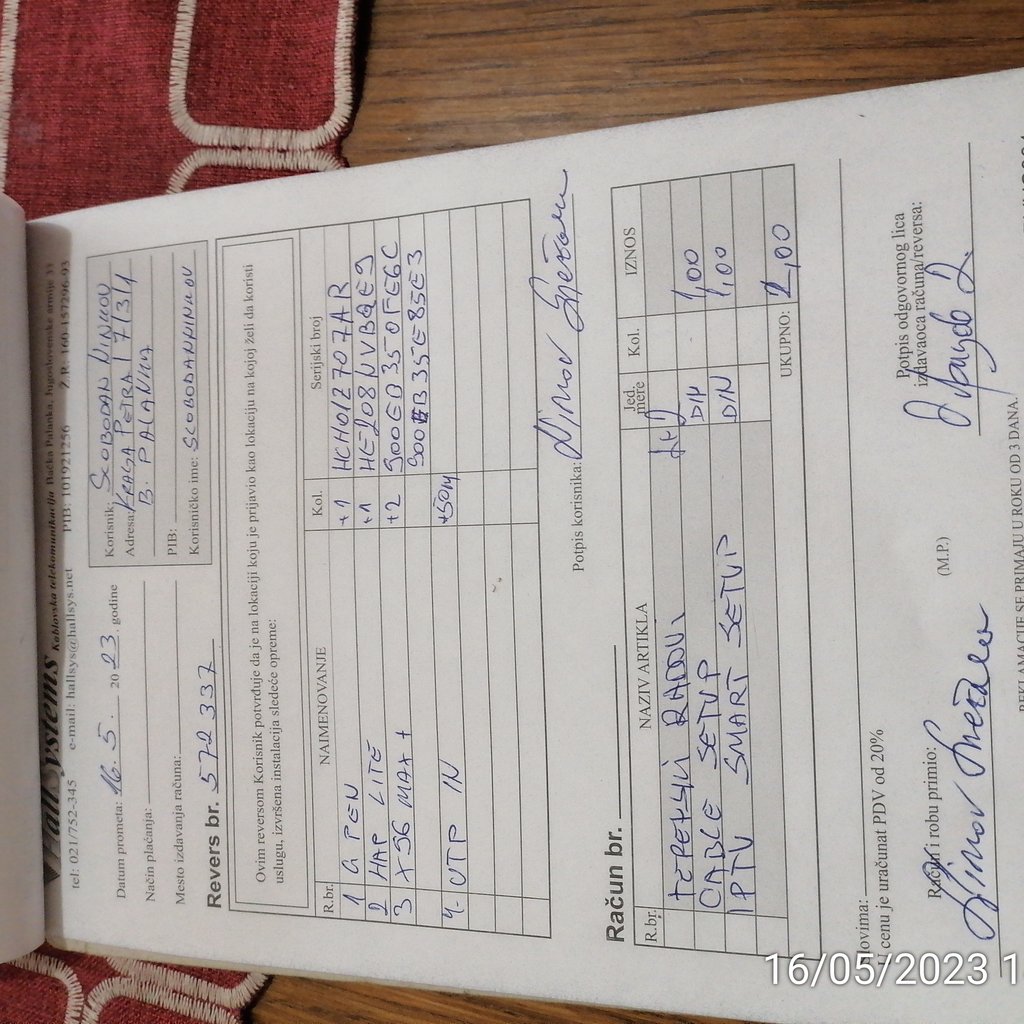 HallSystems Kablovska telekomunikacija Bačka Palanka, Jugoslovenske armije 33
tel: 021/752-345 e-mail: hallsys@hallsys.net PIB: 101921256 Ž.R: 160-157296-93
Datum prometa: 16.5. 2023. godine
Način plaćanja:
Mesto izdavanja računa:
Korisnik: SLOBODAN NINKOV
Adresa: KRALJA PETRA I 7/34
B. PALANKA
PIB:
Korisničko ime: SLOBODANNINKOV
Revers br. 572337
Ovim reversom Korisnik potvrđuje da je na lokaciji koju je prijavio kao lokaciju na kojoj želi da koristi
uslugu, izvršena instalacija sledeće opreme:
R.br. NAIMENOVANJE Kol. Serijski broj
1 G PEN +1 HCH012707AR
2 HAP LITE +1 HE208NVBQE9
3 X96 MAX+ +2 900EB350FE6C
900EB35E85E3
4. UTP IN +50m
Potpis korisnika:
Račun br.
R.br. NAZIV ARTIKLA Jed. mere Kol. IZNOS
ТЕРЕНСКИ RADOVI
CABLE SETUP DIN 1,00
IPTV SMART SETUP DIN 1,00
UKUPNO: 2,00
U cenu je uračunat PDV od 20%
Račun i robu primio:
(M.P.)
Potpis odgovornog lica
izdavaoca računa/reversa:
REKLAMACIJE SE PRIMAJU U ROKU OD 3 DANA.
16/05/2023 1